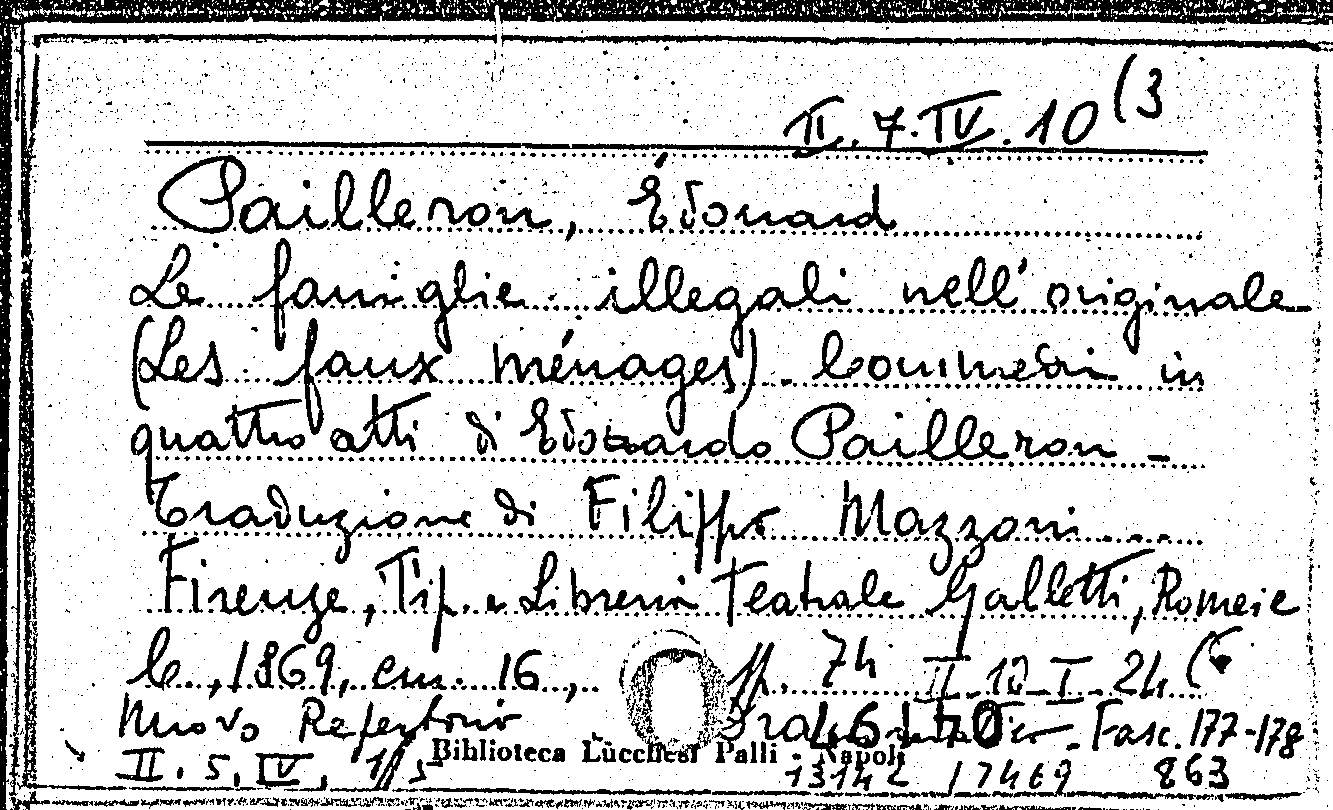 II. 7. IV. 10 (3
Pailleron, Édouard
Le famiglie illegali nell' originale
(Les faux ménages). Commedia in
quattro atti d' Edoardo Pailleron -
Traduzione di Filippo Mazzoni...
Firenze, Tip. e Libreria Teatrale Galletti, Romei e
C., 1869, cm. 16, pp. 74 II-10-I-24 (6
Nuovo Repertorio - Fasc. 177-178
Biblioteca Lucchesi Palli - Napoli
II. 5. IV, 17469 863